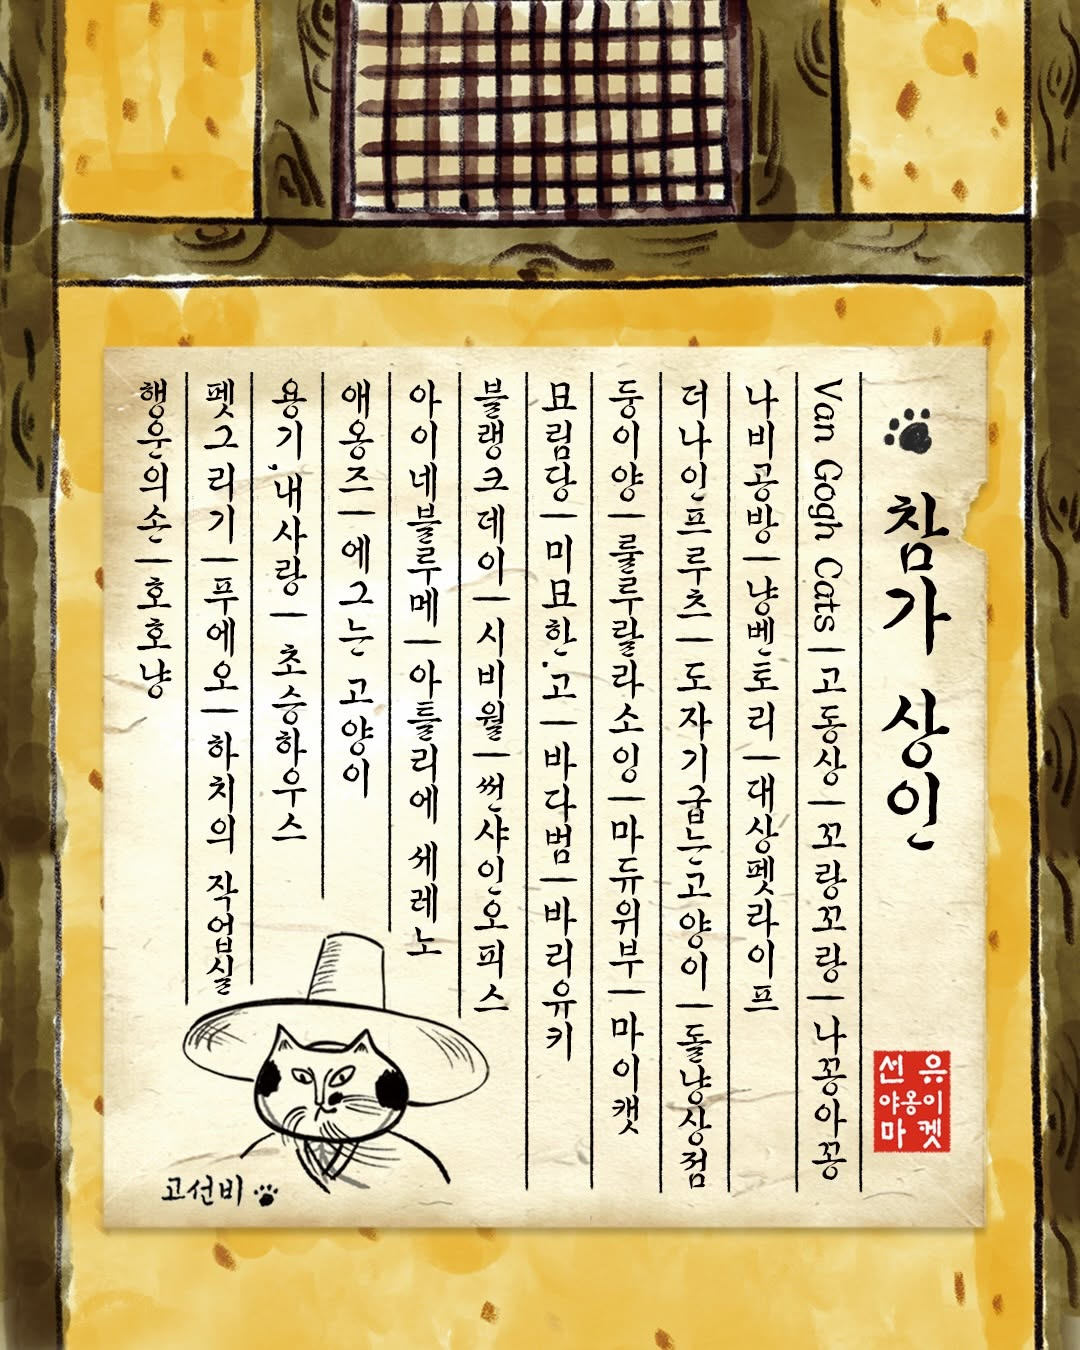 참가 상인
Van Gogh Cats | 고동상 | 꼬랑꼬랑 | 나꽁아꽁
나비공방 | 냥벤토리 | 대상펫라이프
더나인프루츠 | 도자기굽는고양이 | 돌냥상점
둥이양 | 룰루랄라소잉 | 마듀위부 | 마이캣
묘림당 | 미묘한.고 | 바다범 | 바리유키
블랭크데이 | 시비월 | 썬샤인오피스
아이네블루메 | 아틀리에 세레노
애옹즈 | 에그는 고양이
용기,내사랑 | 초승하우스
펫그리기 | 푸에오 | 하치의 작업실
행운의손 | 호호냥
선유
야옹이
마켓
고선비